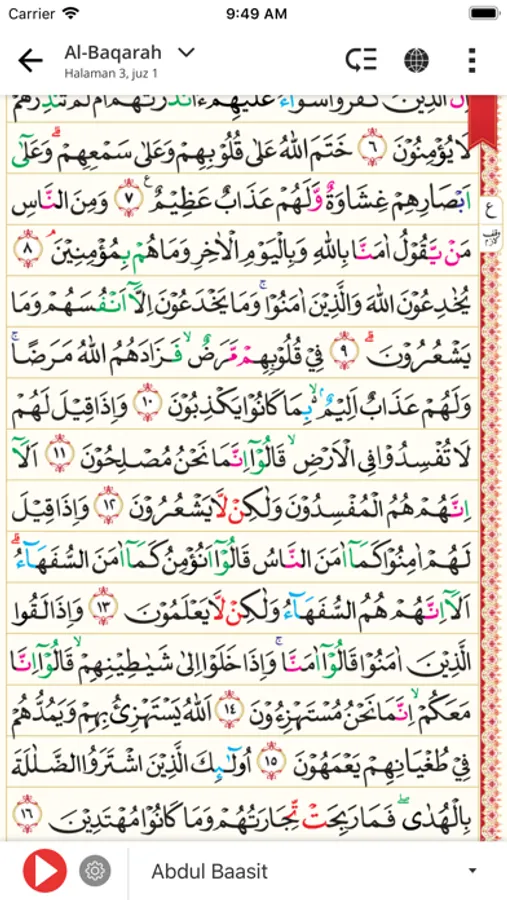 Carrier 9:49 AM
Al-Baqarah
Halaman 3, juz 1
اِنَّ الَّذِيْنَ كَفَرُوْا سَوَاۤءٌ عَلَيْهِمْ ءَاَنْذَرْتَهُمْ اَمْ لَمْ تُنْذِرْهُمْ
لَا يُؤْمِنُوْنَ ۝٦ خَتَمَ اللّٰهُ عَلٰى قُلُوْبِهِمْ وَعَلٰى سَمْعِهِمْ ۗ وَعَلٰٓى
اَبْصَارِهِمْ غِشَاوَةٌ وَّلَهُمْ عَذَابٌ عَظِيْمٌ ۝٧ ع وَمِنَ النَّاسِ
ع
مَنْ يَّقُوْلُ اٰمَنَّا بِاللّٰهِ وَبِالْيَوْمِ الْاٰخِرِ وَمَا هُمْ بِمُؤْمِنِيْنَ ۘ ۝٨
يُخٰدِعُوْنَ اللّٰهَ وَالَّذِيْنَ اٰمَنُوْا ۚ وَمَا يَخْدَعُوْنَ اِلَّآ اَنْفُسَهُمْ وَمَا
يَشْعُرُوْنَ ۗ ۝٩ فِيْ قُلُوْبِهِمْ مَّرَضٌ ۙ فَزَادَهُمُ اللّٰهُ مَرَضًا ۚ
وَلَهُمْ عَذَابٌ اَلِيْمٌ ۢ ۙ بِمَا كَانُوْا يَكْذِبُوْنَ ۝١٠ وَاِذَا قِيْلَ لَهُمْ
لَا تُفْسِدُوْا فِى الْاَرْضِ ۙ قَالُوْٓا اِنَّمَا نَحْنُ مُصْلِحُوْنَ ۝١١ اَلَآ
اِنَّهُمْ هُمُ الْمُفْسِدُوْنَ وَلٰكِنْ لَّا يَشْعُرُوْنَ ۝١٢ وَاِذَا قِيْلَ
لَهُمْ اٰمِنُوْا كَمَآ اٰمَنَ النَّاسُ قَالُوْٓا اَنُؤْمِنُ كَمَآ اٰمَنَ السُّفَهَاۤءُ ۗ
اَلَآ اِنَّهُمْ هُمُ السُّفَهَاۤءُ وَلٰكِنْ لَّا يَعْلَمُوْنَ ۝١٣ وَاِذَا لَقُوا
الَّذِيْنَ اٰمَنُوْا قَالُوْٓا اٰمَنَّا ۚ وَاِذَا خَلَوْا اِلٰى شَيٰطِيْنِهِمْ ۙ قَالُوْٓا اِنَّا
مَعَكُمْ ۙ اِنَّمَا نَحْنُ مُسْتَهْزِءُوْنَ ۝١٤ اَللّٰهُ يَسْتَهْزِئُ بِهِمْ وَيَمُدُّهُمْ
فِيْ طُغْيَانِهِمْ يَعْمَهُوْنَ ۝١٥ اُولٰۤىِٕكَ الَّذِيْنَ اشْتَرَوُا الضَّلٰلَةَ
بِالْهُدٰى ۖ فَمَا رَبِحَتْ تِّجَارَتُهُمْ وَمَا كَانُوْا مُهْتَدِيْنَ ۝١٦
Abdul Baasit